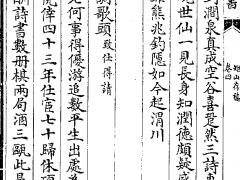 存稿
卷四
到澗泉真成空谷喜跫然三詩
世仙一見長身知潤德頗疑
熊兆釣隱如今起渭川
調歌頭 致仕得請
何事得優游追數平生出處
倖四十三年仕宦七十歸休
詩書數册棋兩局酒三甌此是